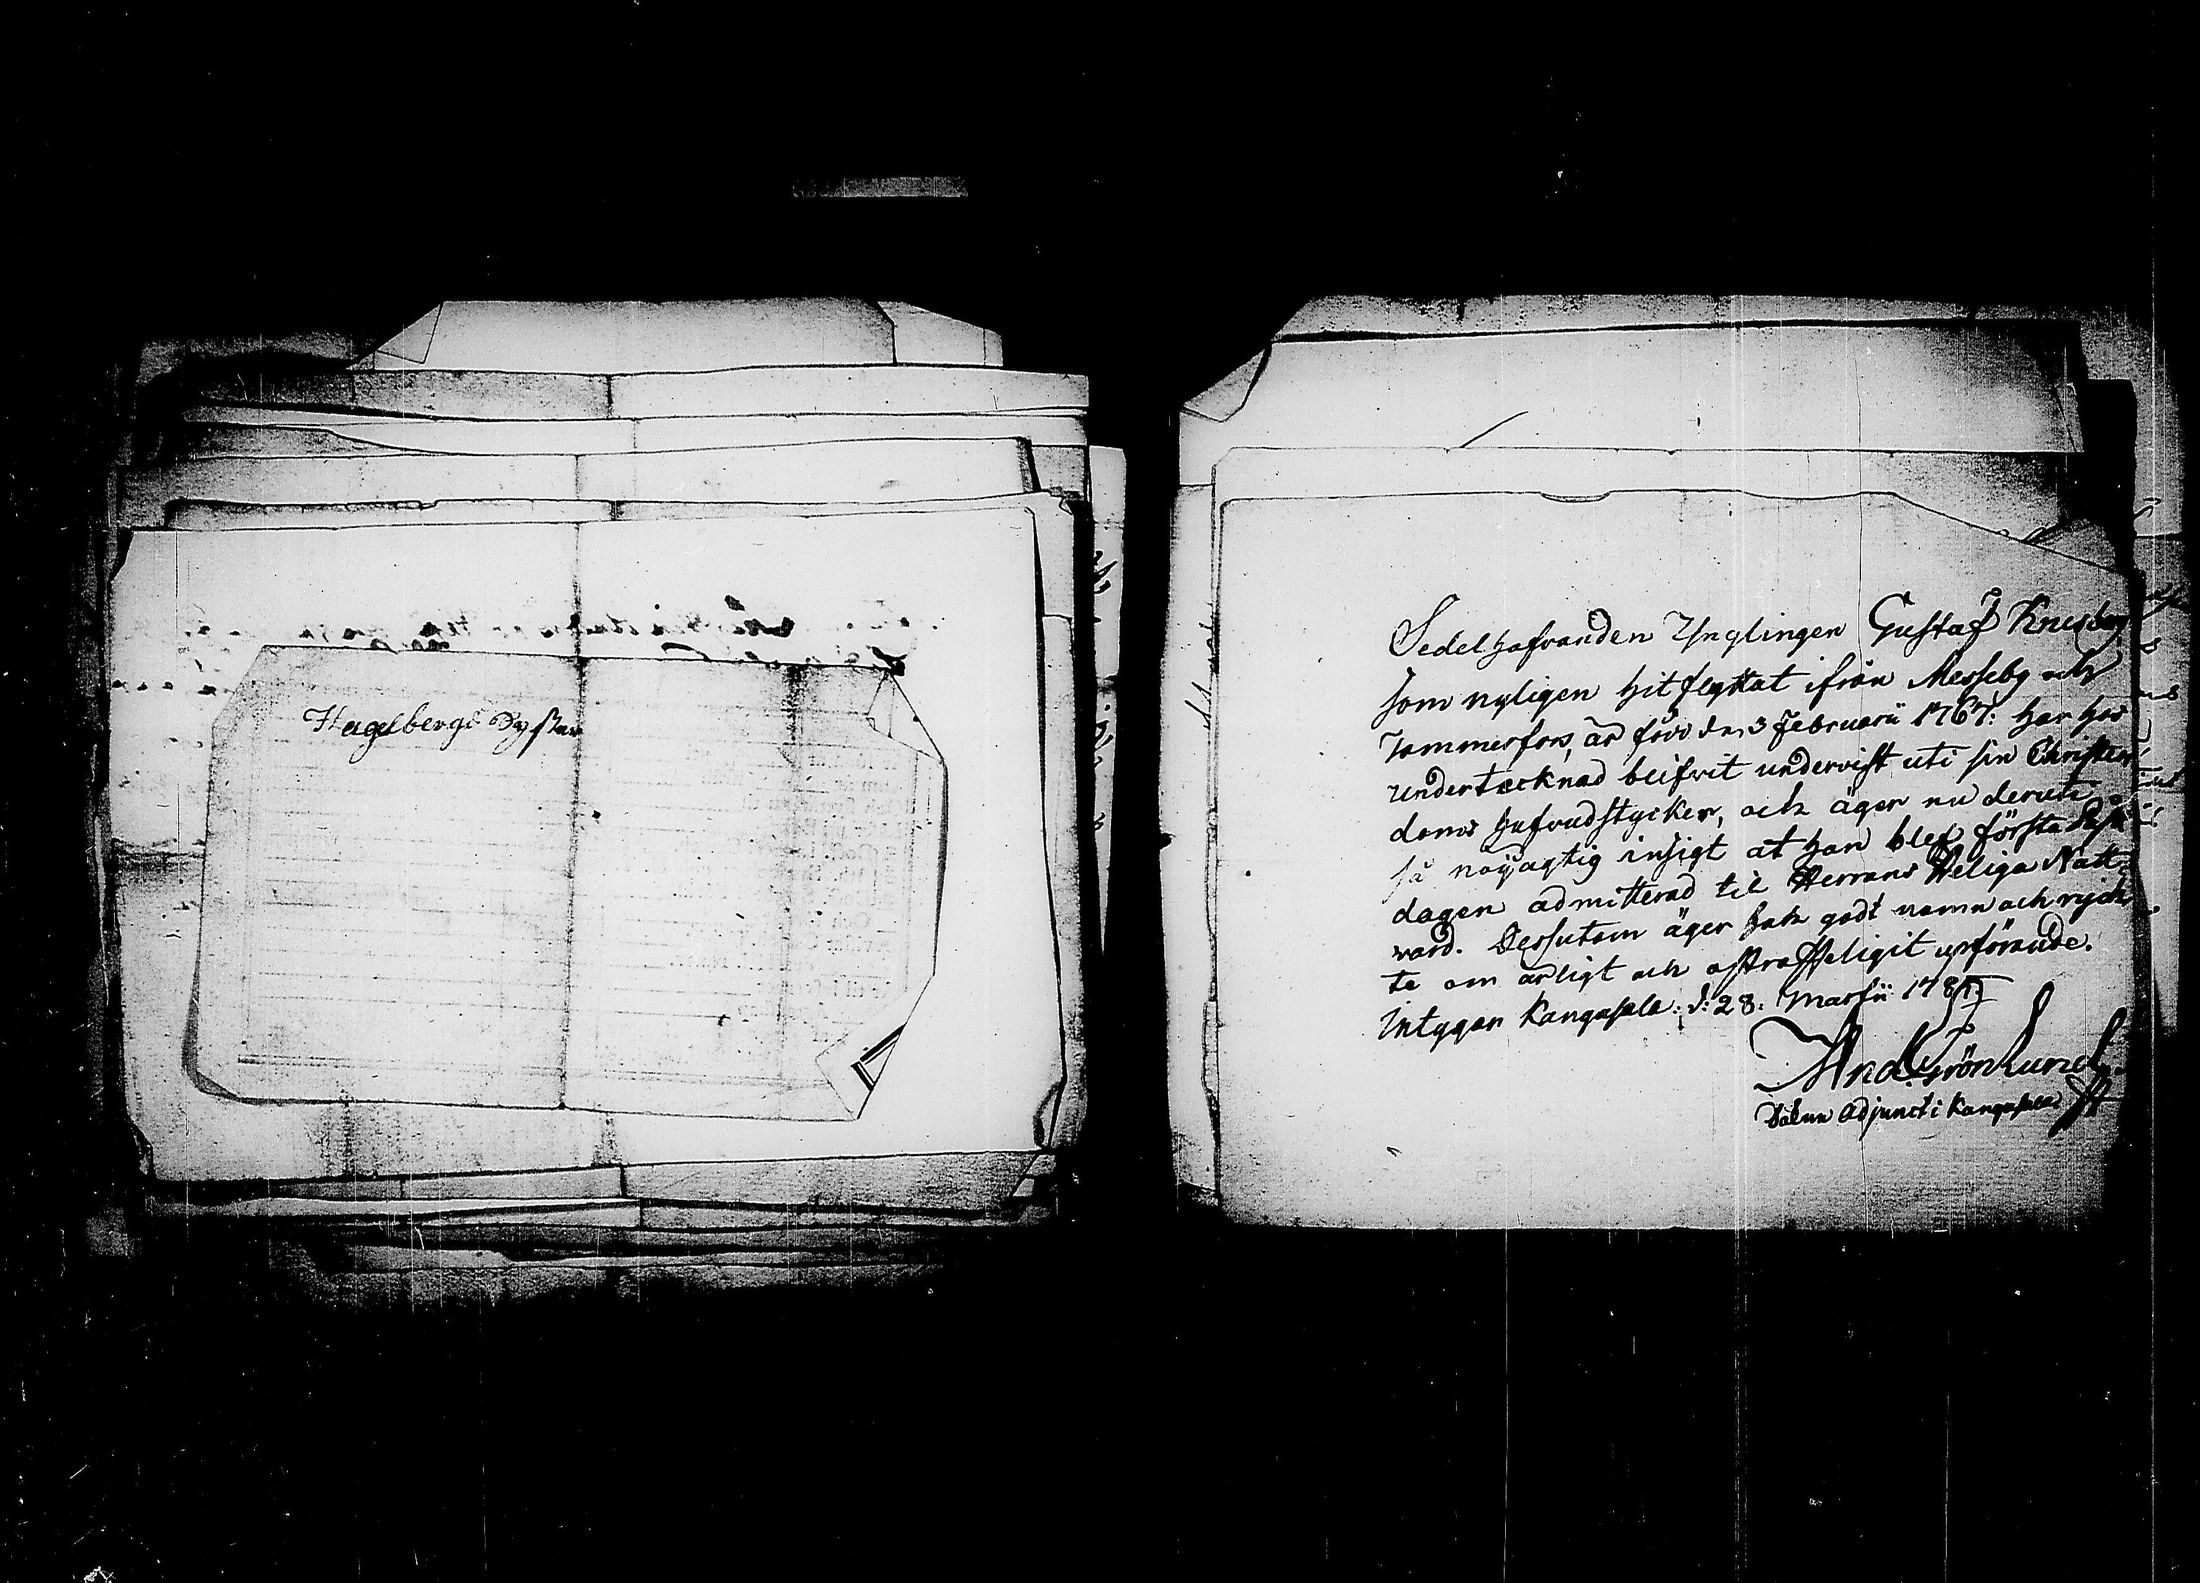 Hagelbergs Syster
Sedelhafvanden Ynglingen Gustaf Knesberg
som nyligen hit flyttat ifrån Messuby och
Tammerfors, är född den 3 Februarii 1767: har hos
undertecknad blifvit undervist uti sin Christen
doms hufvudstycken, och äger nu deruti
så nöyagtig insigt at han blef första Påsk
dagen admitterad til Herrans Heliga Natt
vard. Dessutom äger han godt namn och rych
te om ärligt och ostraffeligit upförande.
Intygar Kangasala. d: 28. Martii 1785
And. Grönlund
Sacellan Adjunct i Kangasala